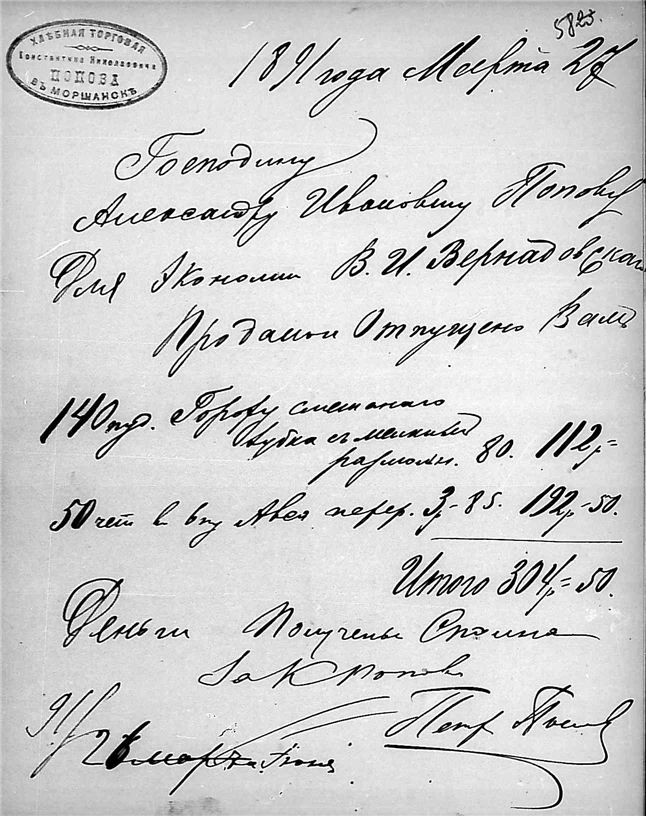 5825.
ХЛѢБНАЯ ТОРГОВАЯ
Константина Николаевича
ПОПОВА
ВЪ МОРШАНСКѢ
1891 года Марта 27
Господину
Александру Ивановичу Попову
Для Экономии В. И. Вернадовскаго
Продано и Отпущено Вамъ
140 пуд. Гороху смешанаго
съ мелкимъ
размолн. 80. 112р=
50 чет в 6 пу Авса перер. 3р-85. 192р-50.
Итого 304р=50.
Деньги Получены Сполна
За К Попова
Петр
91/
26 марта Июня